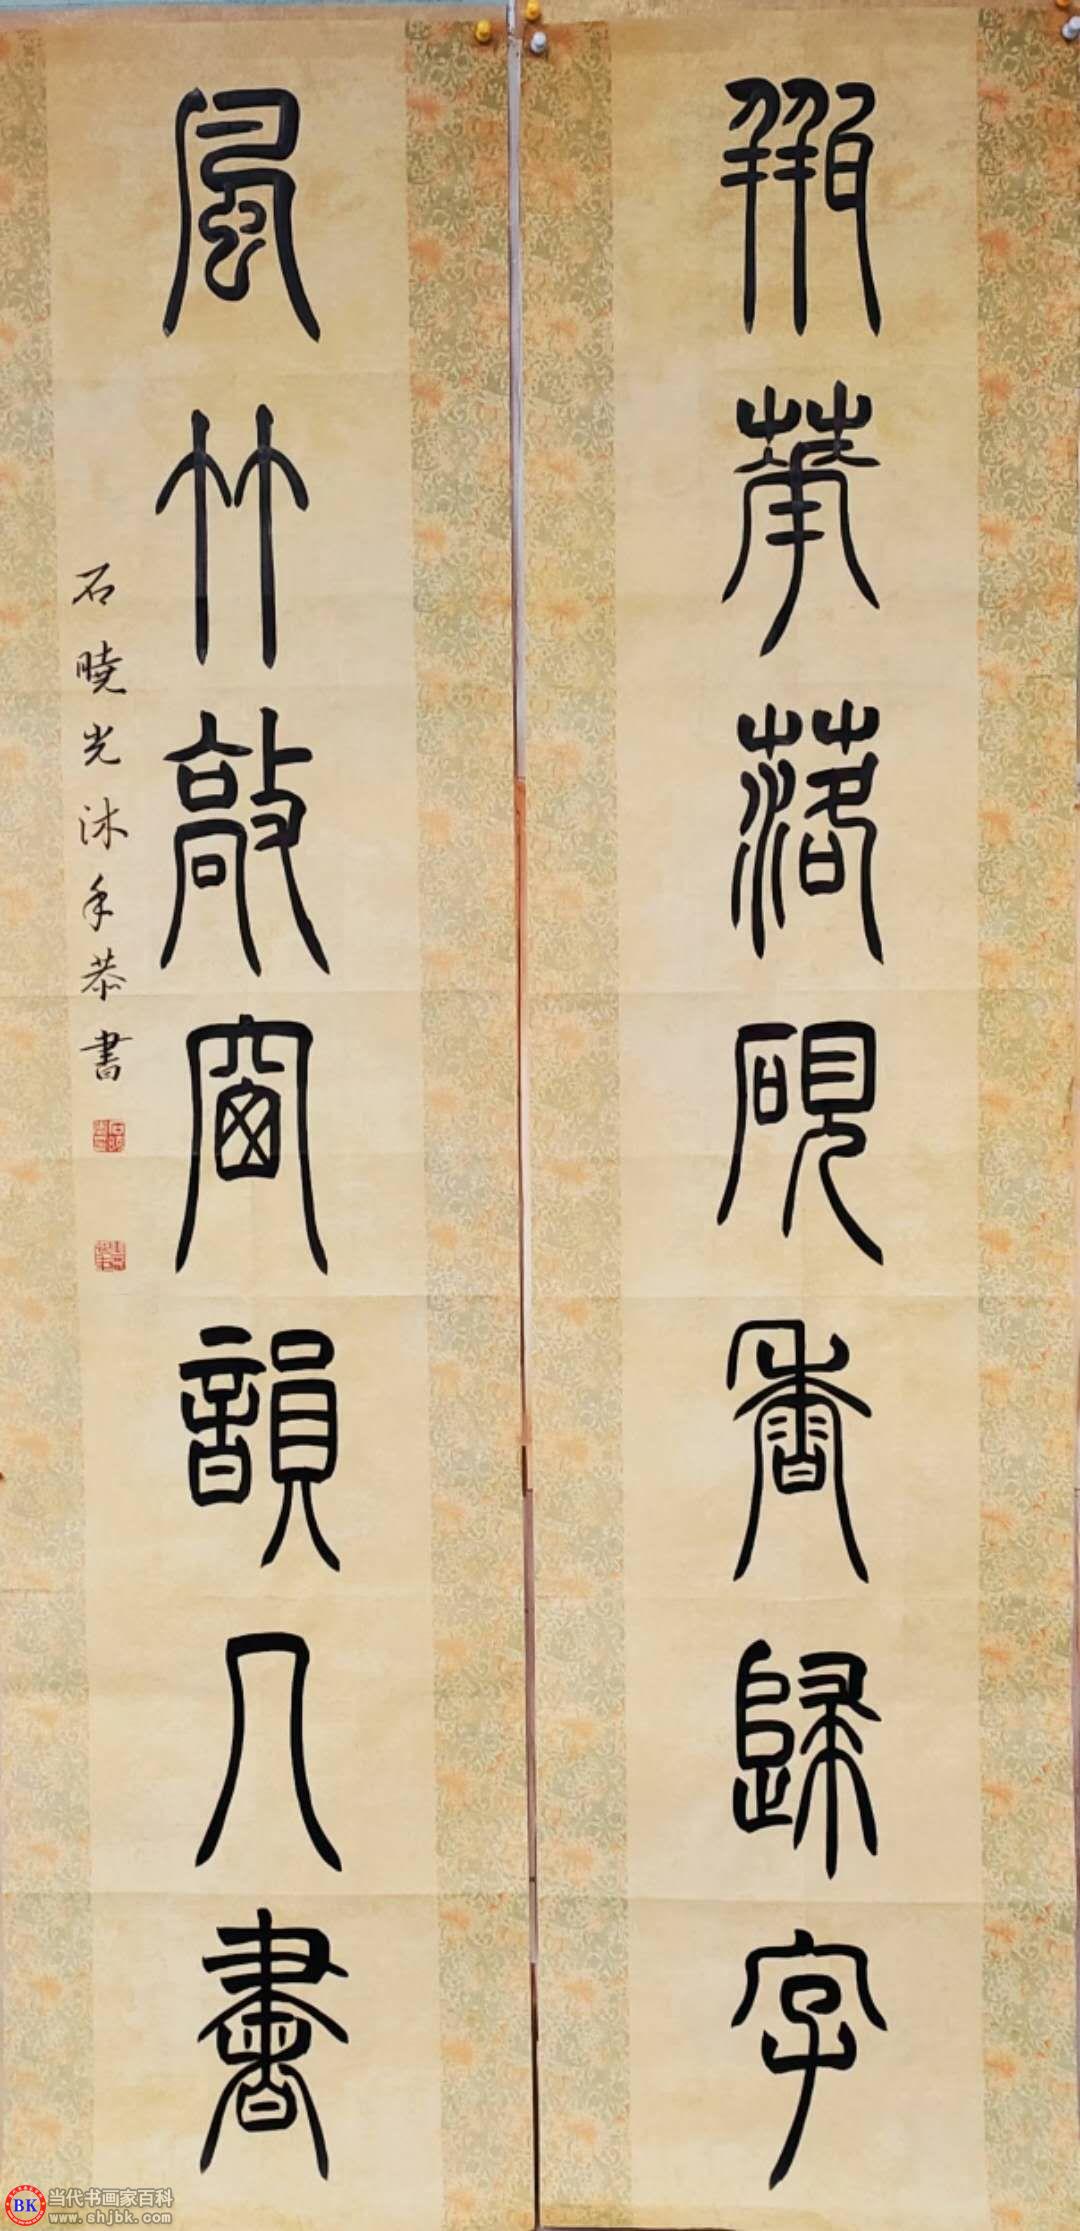 瓶華落硯香歸字
風竹敲窗韻入書
石曉光沐手恭書
BK
当代书画家百科
www.shjbk.com